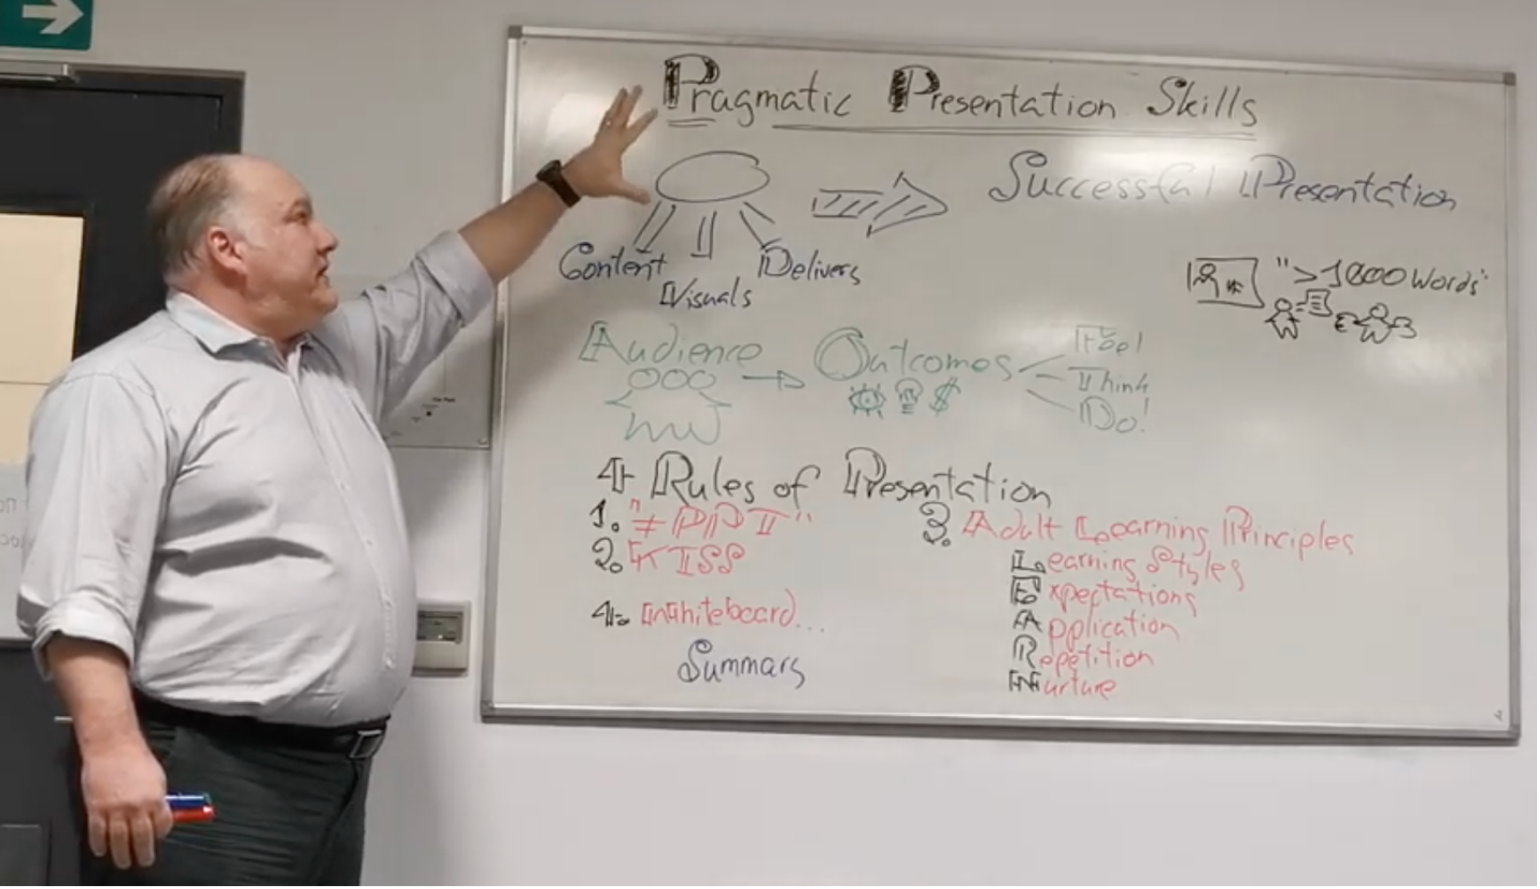 Pragmatic Presentation Skills
Successful Presentation
Content
Visuals
Delivers
">1000 words"
Audience
Outcomes
Feel
Think
Do!
$
4 Rules of Presentation
1. "≠ PPT"
2. KISS
3. Adult Learning Principles
Learning Styles
Expectations
Application
Repetition
Nurture
4. Whiteboard...
Summary